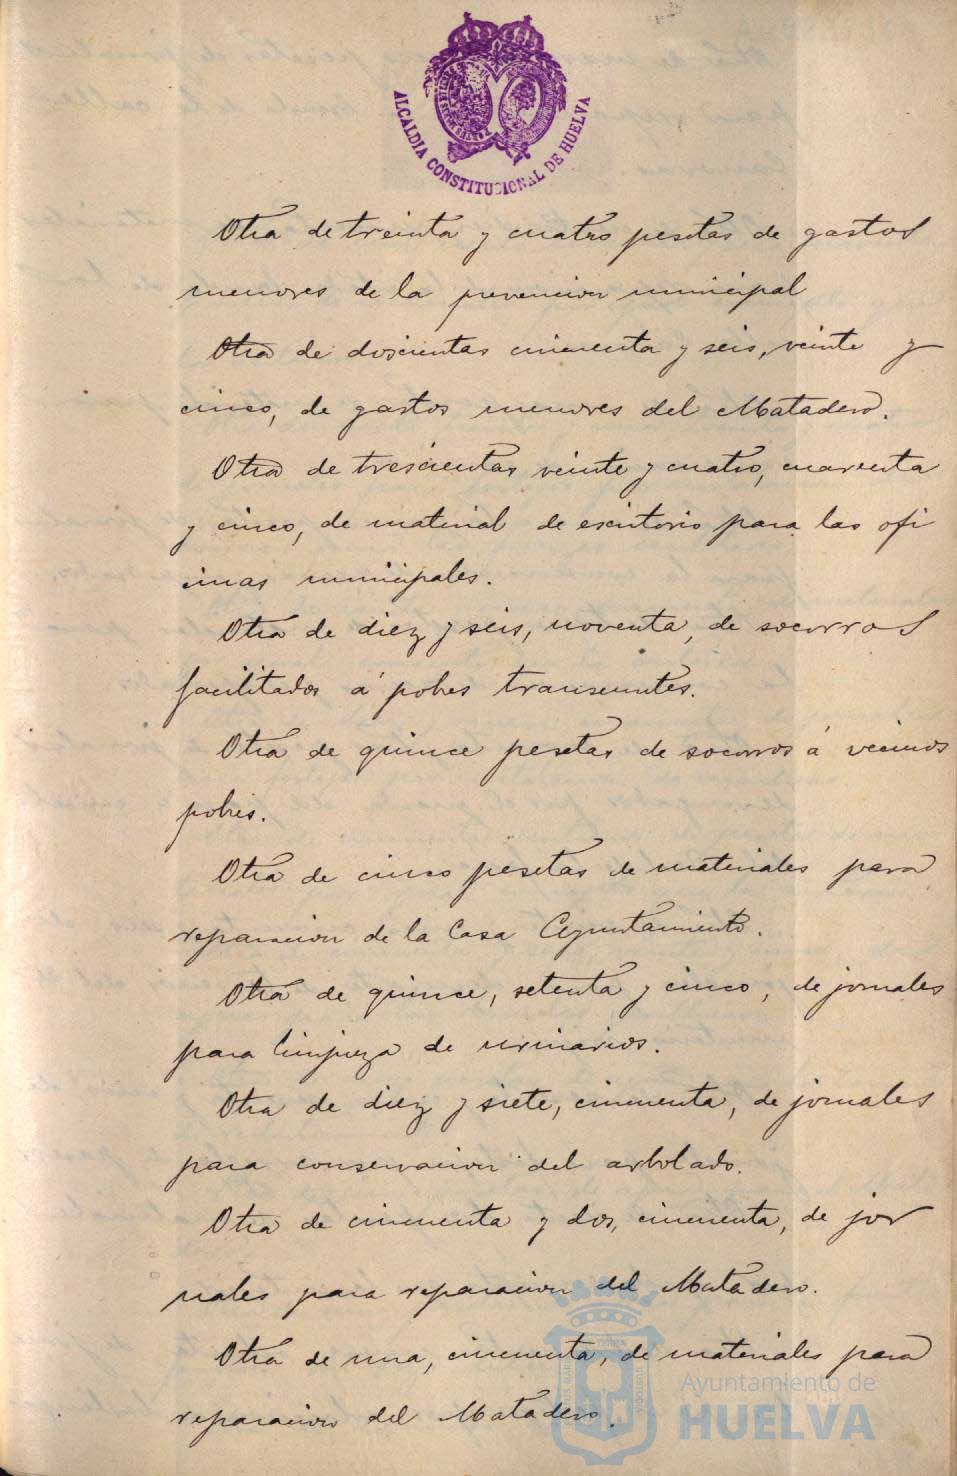 ALCALDIA CONSTITUCIONAL DE HUELVA
Otra de treinta y cuatro pesetas de gastos
menores de la prevencion municipal
Otra de doscientas cincuenta y seis, veinte y
cinco, de gastos menores del Matadero.
Otra de trescientas veinte y cuatro, cuarenta
y cinco, de material de escritorio para las ofi
cinas municipales.
Otra de diez y seis, noventa, de socorros
facilitados á pobres transeuntes.
Otra de quince pesetas de socorros á vecinos
pobres.
Otra de cinco pesetas de materiales para
reparacion de la Casa Ayuntamiento.
Otra de quince, setenta y cinco, de jornales
para limpieza de urinarios.
Otra de diez y siete, cincuenta, de jornales
para conservacion del arbolado.
Otra de cincuenta y dos, cincuenta, de jor
nales para reparacion del Matadero.
Otra de una, cincuenta, de materiales para
reparacion del Matadero.
Ayuntamiento de
HUELVA